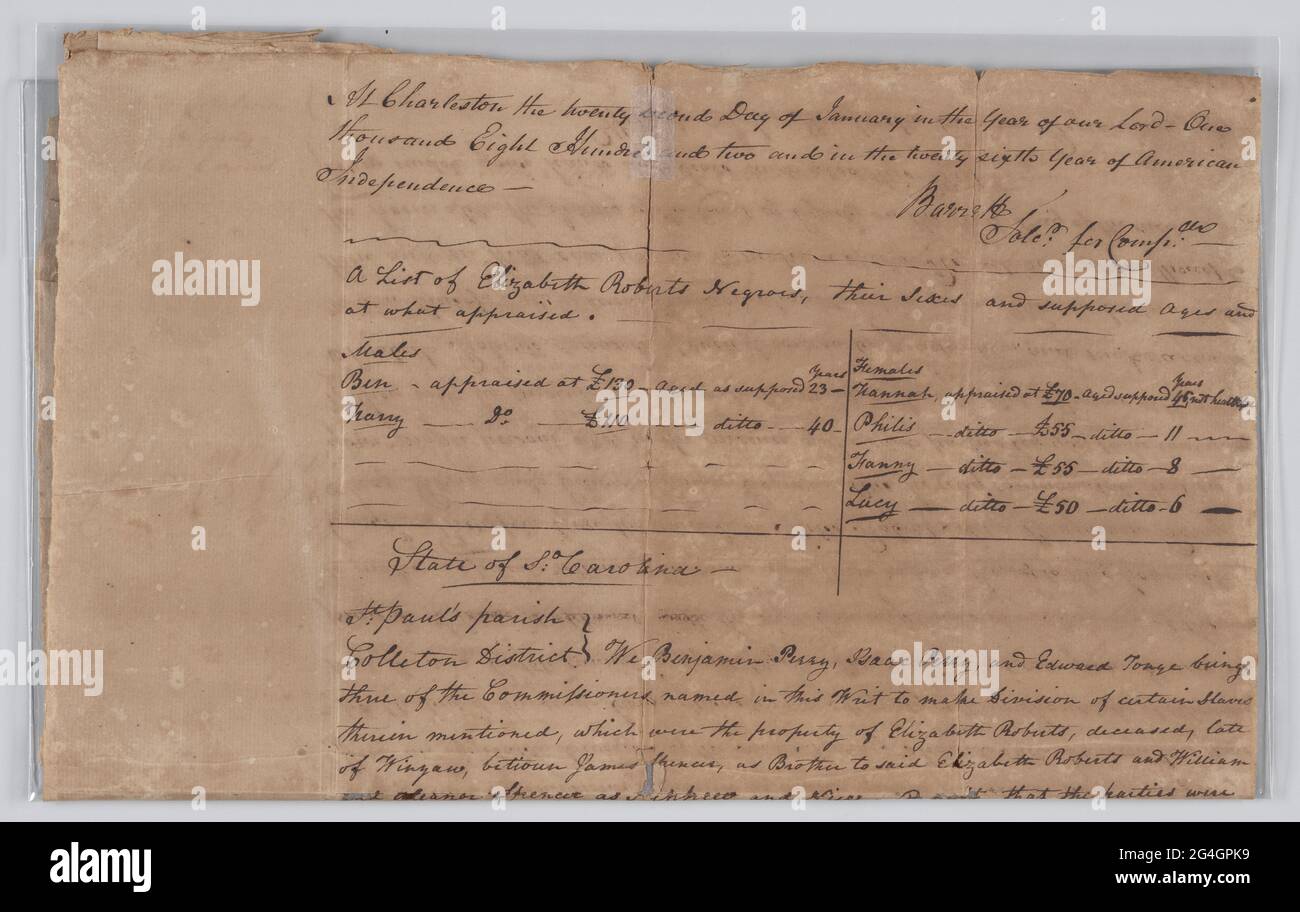 At Charleston the twenty second Day of January in the Year of our Lord - One
thousand Eight Hundred and two and in the twenty sixth Year of American
Independence —
Barrett
Solr. for Compts. —
A List of Elizabeth Roberts Negroes, their Sexes and supposed Ages and
at what appraised.
Males
Ben - appraised at £130 - aged as supposed 23 Years -
Harry — Do. — £110 — ditto — 40 -
Females
Hannah, appraised at £70 - aged supposed 45 Years, not healthy
Philis — ditto - £55 - ditto - 11 —
Fanny — ditto - £55 - ditto - 8 —
Lucy — ditto - £50 - ditto - 6 —
State of So. Carolina —
St. Paul's parish
Colleton District } We Benjamin Perry, Isaac Perry, and Edward Tonge being
three of the Commissioners named in this Writ to make Division of certain Slaves
therein mentioned, which were the property of Elizabeth Roberts, deceased, late
of Winyaw, betweun James Spencer, as Brother to said Elizabeth Roberts and William
and Eleanor Spencer as Nephew and that the parties were
alamy
Image ID: 2G4GPK9
www.alamy.com